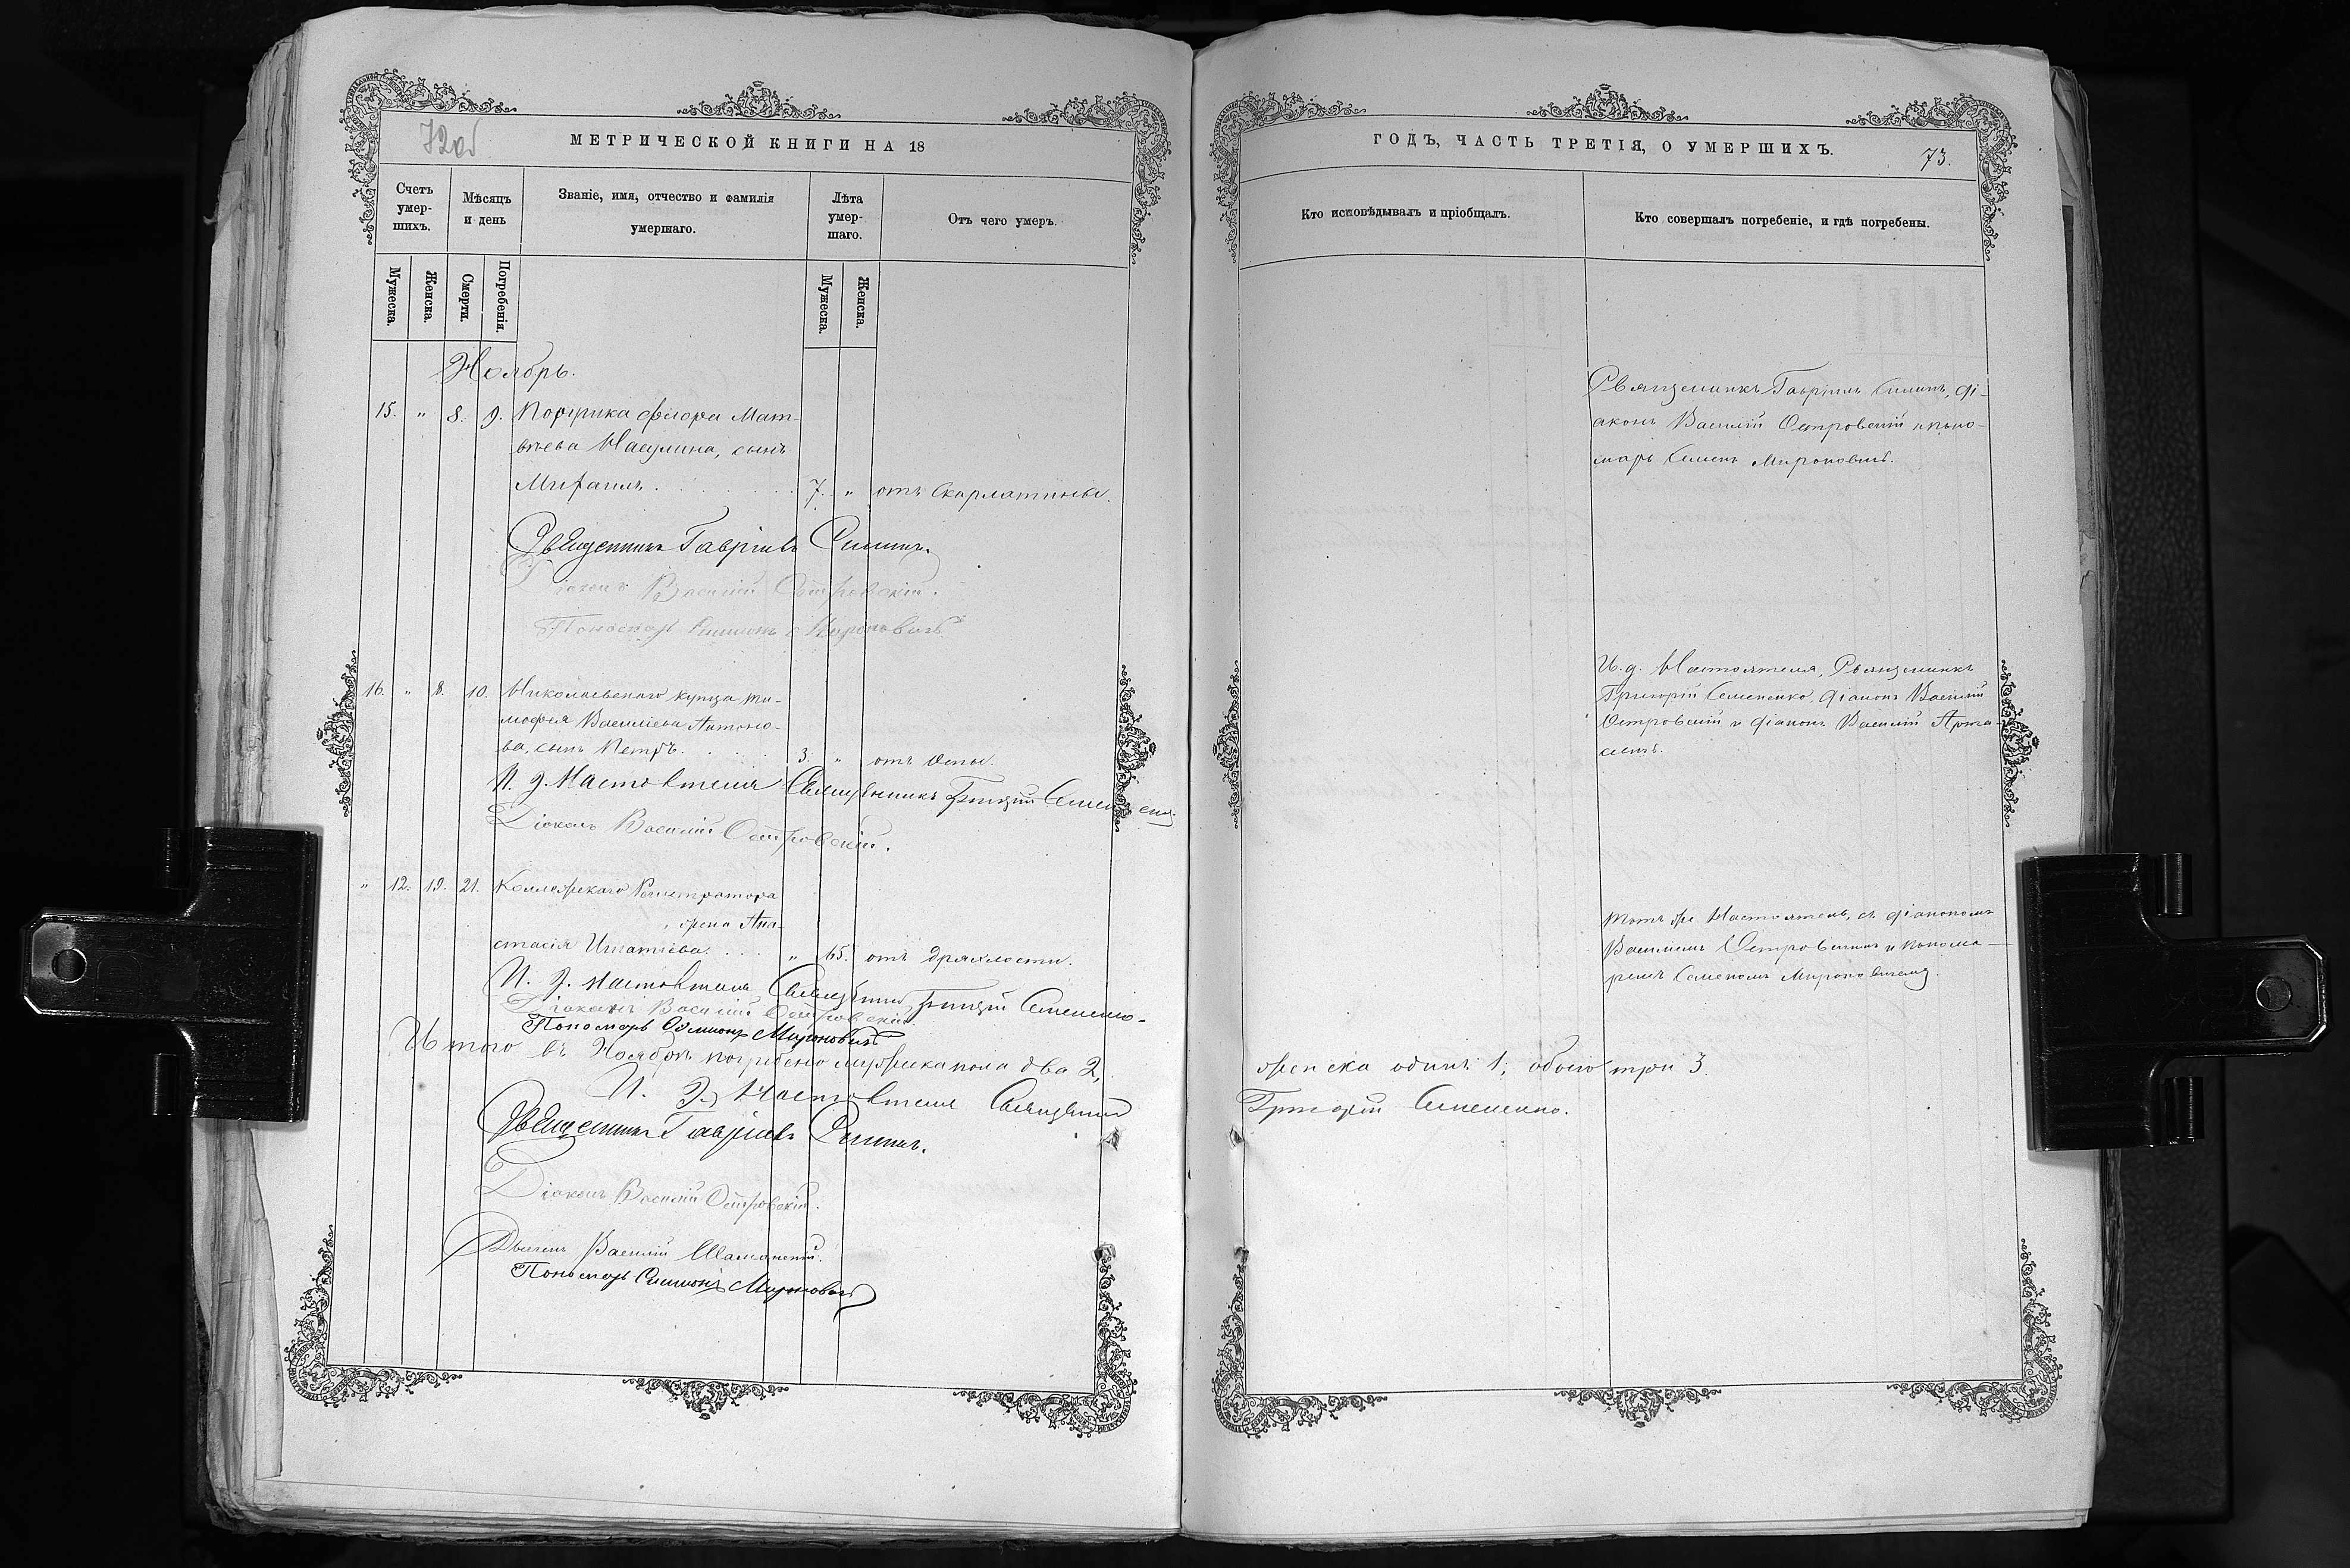 72об
МЕТРИЧЕСКОЙ КНИГИ НА 18
Счетъ умер-шихъ.
Мѣсяцъ и день
Званіе, имя, отчество и фамилія умершаго.
Лѣта умер-шаго.
Отъ чего умеръ.
Мужеска.
Женска.
Смерти.
Погребенія.
Мужеска.
Женска.
Ноябрь.
15. " 8. 9. Флора Мат-
вѣева сынъ
Михаилъ. 7. " отъ Скарлатины.
Священникъ Гавріилъ Силинъ.
Діаконъ Василій Островскій.
Пономарь Симеонъ Мироновичъ
16. " 8. 10. Николаевскаго купца Ти-
мофея Васильева Антоно-
ва, сынъ Петръ. 3. " отъ Оспы.
И. д. Настоятеля Священникъ Григорій Семененко
Діаконъ Василій Островскій.
" 12. 19. 21. Коллежскаго Регистратора
жена Ана-
стасія Игнатіева. " 65. отъ дряхлости.
И. д. Настоятеля Священникъ Григорій Семененко
Діаконъ Василій Островскій
Пономарь Симеонъ Мироновичъ
Итого въ Ноябрѣ погребено мужеска пола два 2,
И. д. Настоятеля Священникъ
Священникъ Гавріилъ Силинъ.
Діаконъ Василій Островскій.
Василій
Пономарь Симеонъ Мироновичъ
ГОДЪ, ЧАСТЬ ТРЕТІЯ, О УМЕРШИХЪ.
73.
Кто исповѣдывалъ и пріобщалъ.
Кто совершалъ погребеніе, и гдѣ погребены.
Священникъ Гавріилъ Силинъ, Ді-
аконъ Василій Островскій и поно-
марь Семенъ Мироновичъ.
И. д. Настоятеля, Священникъ
Григорій Семененко, Діаконъ Василій
Островскій и Діаконъ Василій
Тотъ же Настоятель, съ Діакономъ
Василіемъ Островскимъ и понома-
ремъ Семеномъ Мироновичемъ
женска одинъ 1; обоего три 3.
Григорій Семененко.